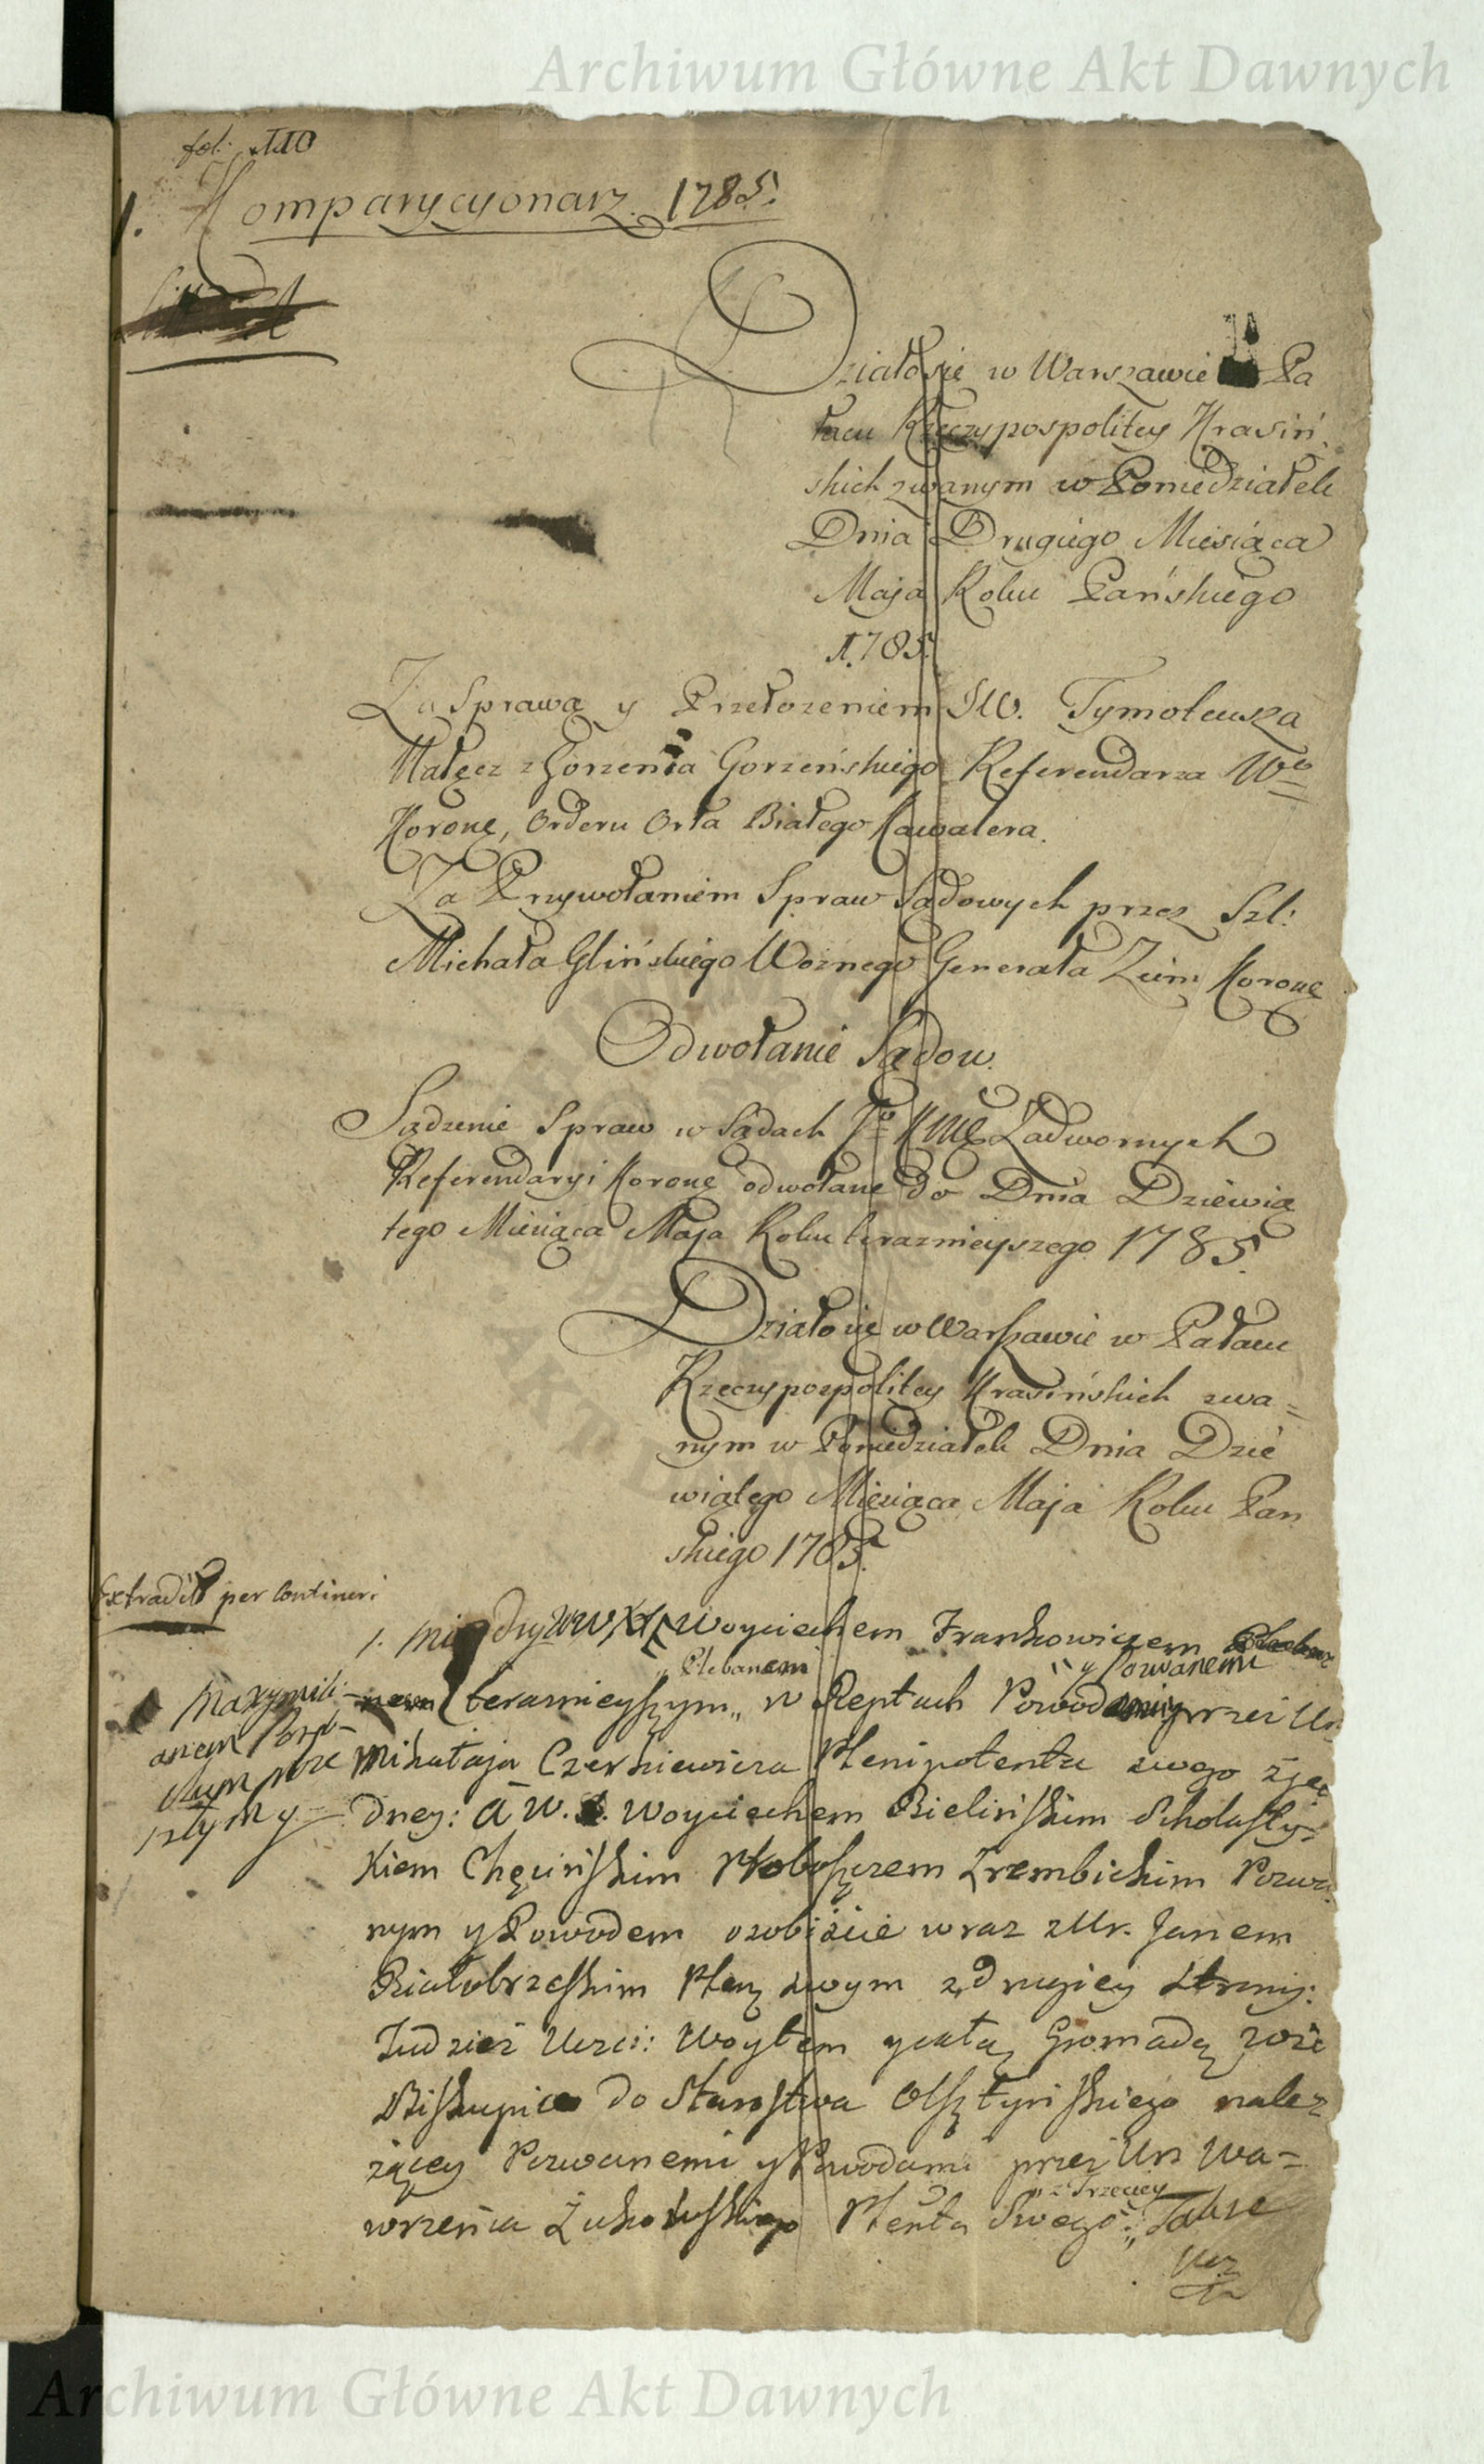 Archiwum Główne Akt Dawnych
fol: 110
1. Komparycyonarz. 1785.
Działo się w Warszawie Pa
łacu Rzeczypospolitey Krasiń
skich zwanym w Poniedziałek
Dnia Drugiego Miesiąca
Maja Roku Pańskiego
1785.
Za Sprawą y Przełożeniem JW. Tymoteusza
z Gorzenia Gorzeńskiego Referendarza Wo
Koronę, Orderu Orła Białego Kawalera.
Za Przywołaniem Spraw Sądowych przez Szl:
Michała Glińskiego Woznego Generała Ziem Koronę
Odwołanie Sądow.
Sądzenie Spraw w Sądach Zadwornych
Referendaryi Koronę odwołane do Dnia Dziewią
tego Miesiąca Maja Roku teraznieyszego 1785.
Działo się w Warszawie w Pałacu
Rzeczypospolitey Krasińskich zwa=
nym w Poniedziałek Dnia Dzie
wiątego Miesiąca Maja Roku Pan
skiego 1785.
Extradit per Contineri
1. Między WW. XX. Woyciechem Frankowiczem
Plebanem y Pozwanemi
teraznieyszym w Reptach przez Ur.
Maxymili
anem
Mikołaja Czerkiewicza Plenipotenta swego z je
dney: a W. Woyciechem Bielińskim Scholasty=
kiem Chęcińskim Proboszczem Zrembickim Pozwa
nym y Powodem osobiście wraz z Ur. Janem
Białobrzeskim Plen swym z drugiey strony:
Tudzież Ucz: Woytem y całą Gromadą wsi
Biskupice do Starostwa Olsztyńskiego nalez
żącey Pozwanemi y Powodami przez Ur. Wa=
z Trzeciey
wrzeńca Plenta Swego: Także
Ucz
Archiwum Główne Akt Dawnych